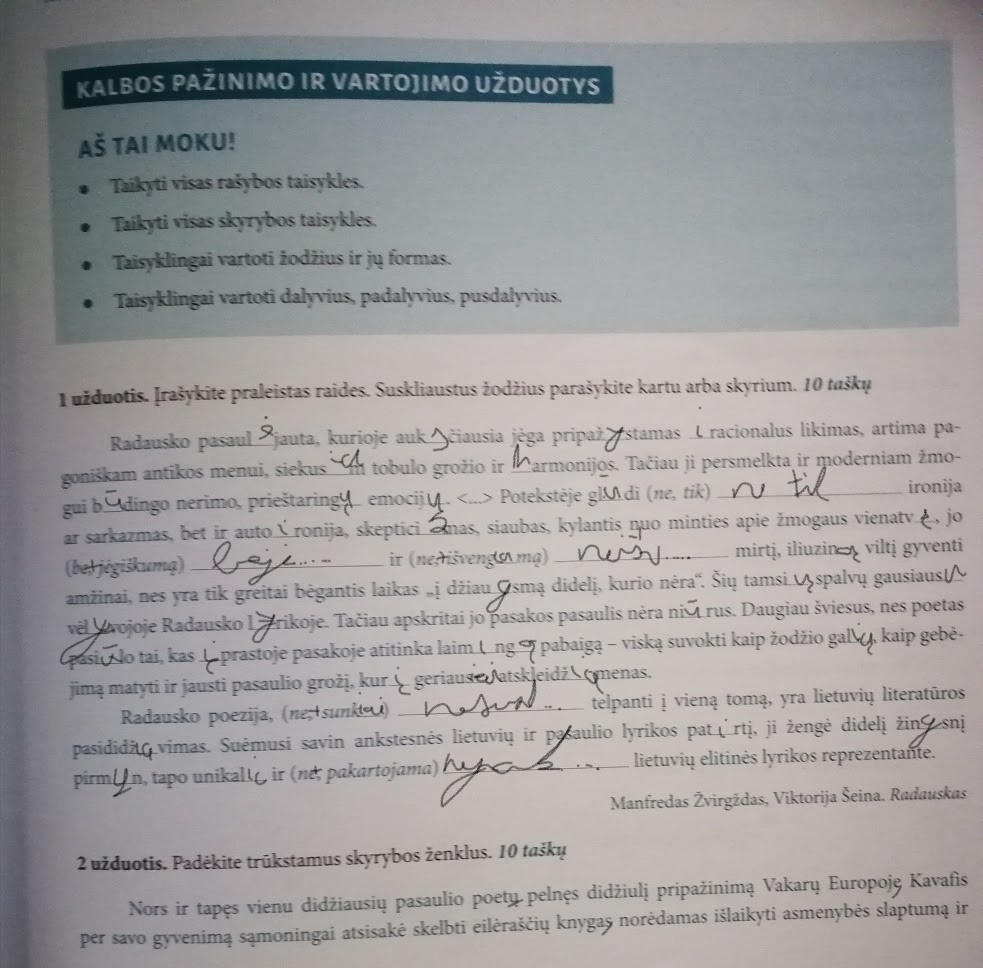 KALBOS PAŽINIMO IR VARTOJIMO UŽDUOTYS
AŠ TAI MOKU!
• Taikyti visas rašybos taisykles.
• Taikyti visas skyrybos taisykles.
• Taisyklingai vartoti žodžius ir jų formas.
• Taisyklingai vartoti dalyvius, padalyvius, pusdalyvius.
1 užduotis. Įrašykite praleistas raides. Suskliaustus žodžius parašykite kartu arba skyrium. 10 taškų
Radausko pasaulėjauta, kurioje aukščiausia jėga pripažystamas iracionalus likimas, artima pa-
goniškam antikos menui, tobulo grožio ir harmonijos. Tačiau ji persmelkta ir moderniam žmo-
gui būdingo nerimo, prieštaringų emocijų. <...> Potekstėje glūdi (ne, tik) ne tik ironija
ar sarkazmas, bet ir autoironija, siaubas, kylantis nuo minties apie žmogaus vienatvę, jo
(be, jėgiškumą) beje... ir (ne, išvengiamą) mirtį, viltį gyventi
amžinai, nes yra tik greitai bėgantis laikas „į džiaugsmą didelį, kurio nėra“. Šių tamsių spalvų
Radausko lyrikoje. Tačiau apskritai jo pasakos pasaulis nėra niūrus. Daugiau šviesus, nes poetas
pasiūlo tai, kas įprastoje pasakoje atitinka laimingą pabaigą – viską suvokti kaip žodžio galių, kaip gebė-
jimą matyti ir jausti pasaulio grožį, kurį geriausiai atskleidžia menas.
Radausko poezija, (ne, sunkiai) nesunk... telpanti į vieną tomą, yra lietuvių literatūros
pasididžiavimas. Suėmusi savin ankstesnės lietuvių ir pasaulio lyrikos patirtį, ji žengė didelį žingsnį
pirmyn, tapo ir (ne, pakartojama) lietuvių elitinės lyrikos reprezentante.
Manfredas Žvirgždas, Viktorija Šeina. Radauskas
2 užduotis. Padėkite trūkstamus skyrybos ženklus. 10 taškų
Nors ir tapęs vienu didžiausių pasaulio poetų, pelnęs didžiulį pripažinimą Vakarų Europoje, Kavafis
per savo gyvenimą sąmoningai atsisakė skelbti eilėraščių knygas, norėdamas išlaikyti asmenybės slaptumą ir